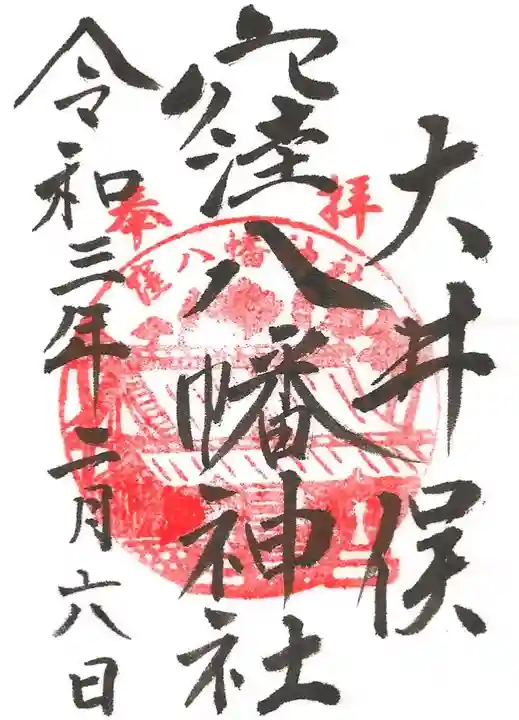 大井俣
窪八幡神社
令和三年二月六日
奉拝
窪八幡神社